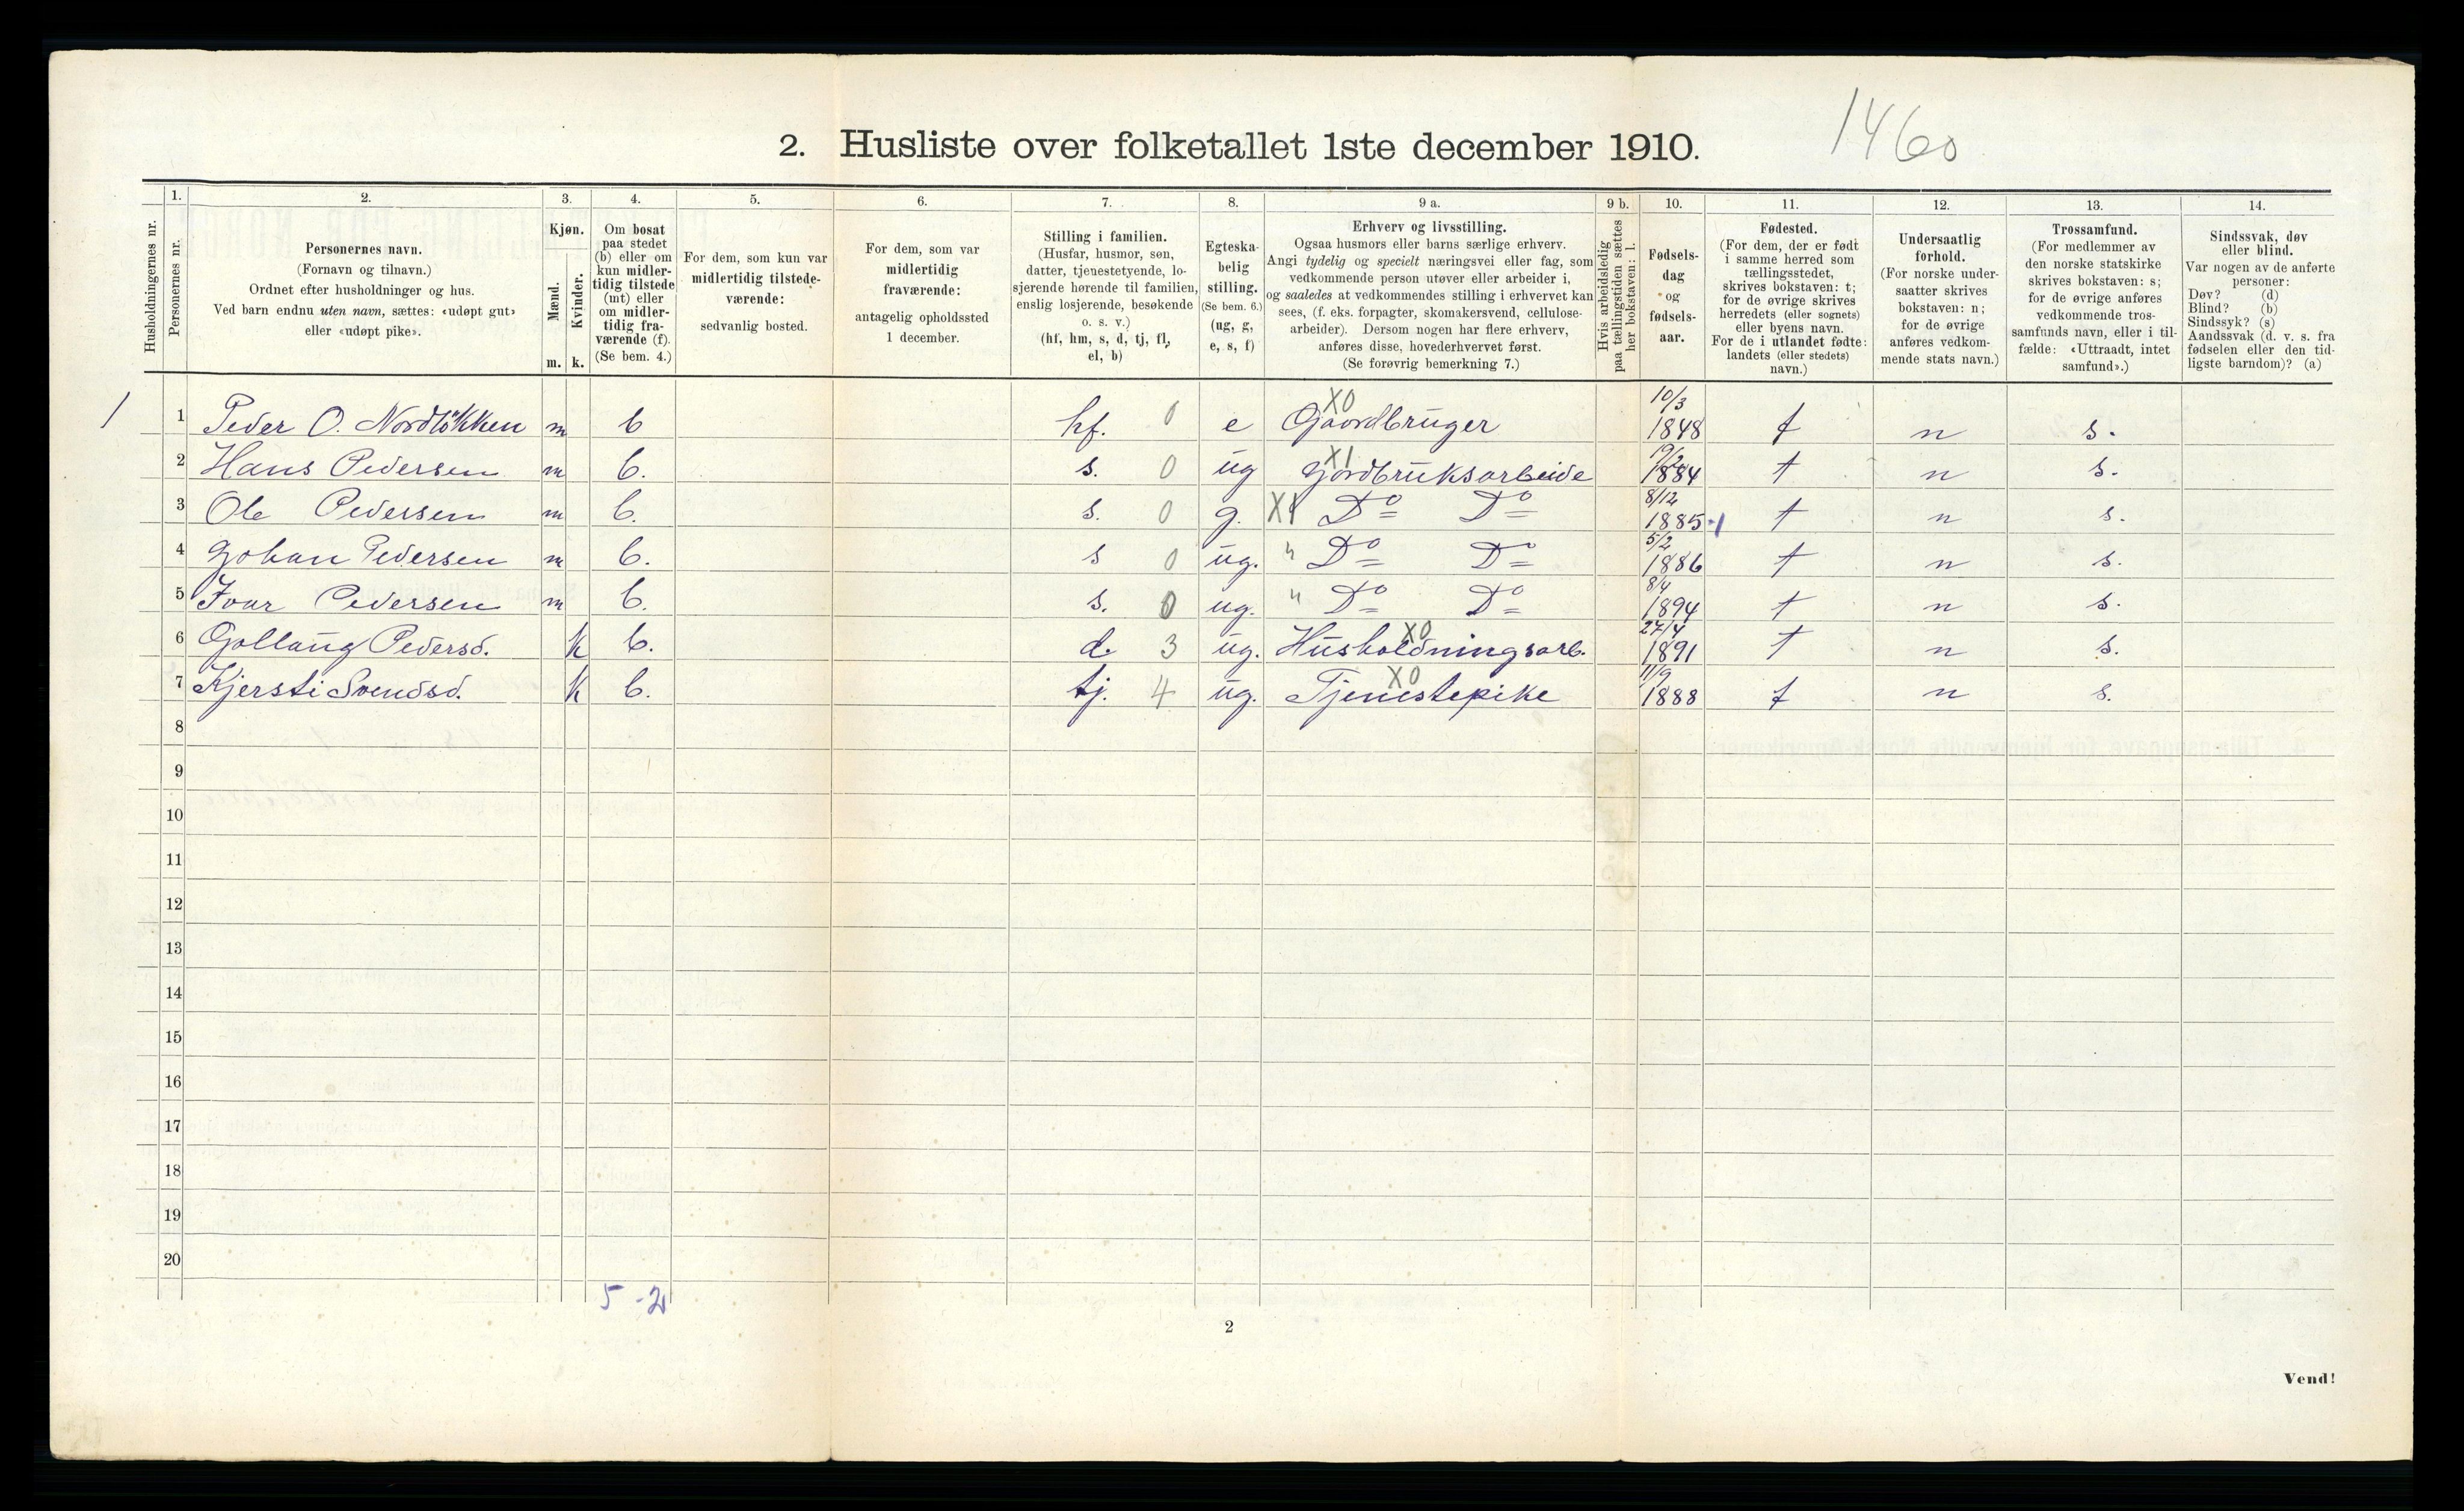 1460
2. Husliste over folketallet 1ste december 1910.
Husholdningernes nr.
1.
Personernes nr.
2.
Personernes navn.
(Fornavn og tilnavn.)
Ordnet efter husholdninger og hus.
Ved barn endnu uten navn, sættes: «udøpt gut»
eller «udøpt pike».
3.
Kjøn.
Mænd.
Kvinder.
m. k.
4.
Om bosat
paa stedet
(b) eller om
kun midler-
tidig tilstede
(mt) eller
om midler-
tidig fra-
værende (f).
(Se bem. 4.)
5.
For dem, som kun var
midlertidig tilstede-
værende:
sedvanlig bosted.
6.
For dem, som var
midlertidig
fraværende:
antagelig opholdssted
1 december.
7.
Stilling i familien.
(Husfar, husmor, søn,
datter, tjenestetyende, lo-
sjerende hørende til familien,
enslig losjerende, besøkende
o. s. v.)
(hf, hm, s, d, tj, fl,
el, b)
8.
Egteska-
belig
stilling.
(Se bem. 6.)
(ug, g,
e, s, f)
9 a.
Erhverv og livsstilling.
Ogsaa husmors eller barns særlige erhverv.
Angi tydelig og specielt næringsvei eller fag, som
vedkommende person utøver eller arbeider i,
og saaledes at vedkommendes stilling i erhvervet kan
sees, (f. eks. forpagter, skomakersvend, cellulose-
arbeider). Dersom nogen har flere erhverv,
anføres disse, hovederhvervet først.
(Se forøvrig bemerkning 7.)
9 b.
Hvis arbeidsledig
paa tællingstiden sættes
her bokstaven: l.
10.
Fødsels-
dag
og
fødsels-
aar.
11.
Fødested.
(For dem, der er født
i samme herred som
tællingsstedet,
skrives bokstaven: t;
for de øvrige skrives
herredets (eller sognets)
eller byens navn.
For de i utlandet fødte:
landets (eller stedets)
navn.)
12.
Undersaatlig
forhold.
(For norske under-
saatter skrives
bokstaven: n;
for de øvrige
anføres vedkom-
mende stats navn.)
13.
Trossamfund.
(For medlemmer av
den norske statskirke
skrives bokstaven: s;
for de øvrige anføres
vedkommende tros-
samfunds navn, eller i til-
fælde: «Uttraadt, intet
samfund».)
14.
Sindssvak, døv
eller blind.
Var nogen av de anførte
personer:
Døv? (d)
Blind? (b)
Sindssyk? (s)
Aandssvak (d. v. s. fra
fødselen eller den tid-
ligste barndom)? (a)
1 1 Peder O. Nordløkken m b hf. 0 e X0 Gaardbruger 10/3 1848 t n s.
2 Hans Pedersen m b. s. 0 ug X1 Gordbruksarbeide 19/2 1884 t n s.
3 Ole Pedersen m b. s. 0 g. X1 Do Do 8/12 1885 t n s.
4 Johan Pedersen m b. s 0 ug. " Do Do 5/2 1886 t n s.
5 Ivar Pedersen m b. s. 0 ug. " Do Do 8/4 1894 t n s.
6 Gollaug Pedersd. k b. d. 3 ug. X0 Husholdningsarb. 27/4 1891 t n s.
7 Kjersti Svendsd. k b. tj. 4 ug. X0 Tjenestepike 11/9 1888 t n s.
8
9
10
11
12
13
14
15
16
17
18
19
20
5 - 2
2
Vend!